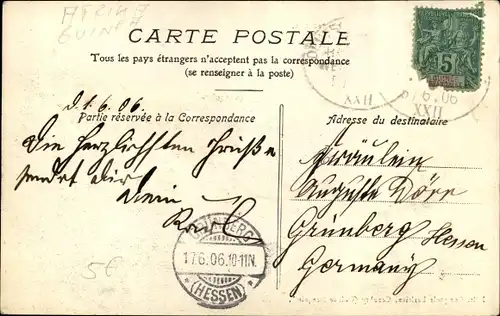 AFRIKA
GUINEA
CARTE POSTALE
Tous les pays étrangers n'acceptent pas la correspondance
(se renseigner à la poste)
5
6 06
XXII
d. 1. 6. 06.
Partie réservée à la Correspondance
Adresse du destinataire
Die herzlichsten Grüße
sendet Dir
Dein
Karl
Fräulein
Auguste Döre
Grünberg Hessen
Germany
GRÜNBERG
17.6.06.10-11N.
(HESSEN)
5€